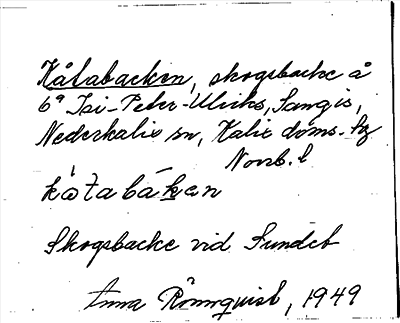 Kåtabacken, skogsbacke å
6ª Isi-Peter-Ulriks, Sangis,
Nederkalix sn, Kalix doms. hg
Norrb. l
kå̀tabákan
Skogsbacke vid Sundet
Anna Rönnquist, 1949